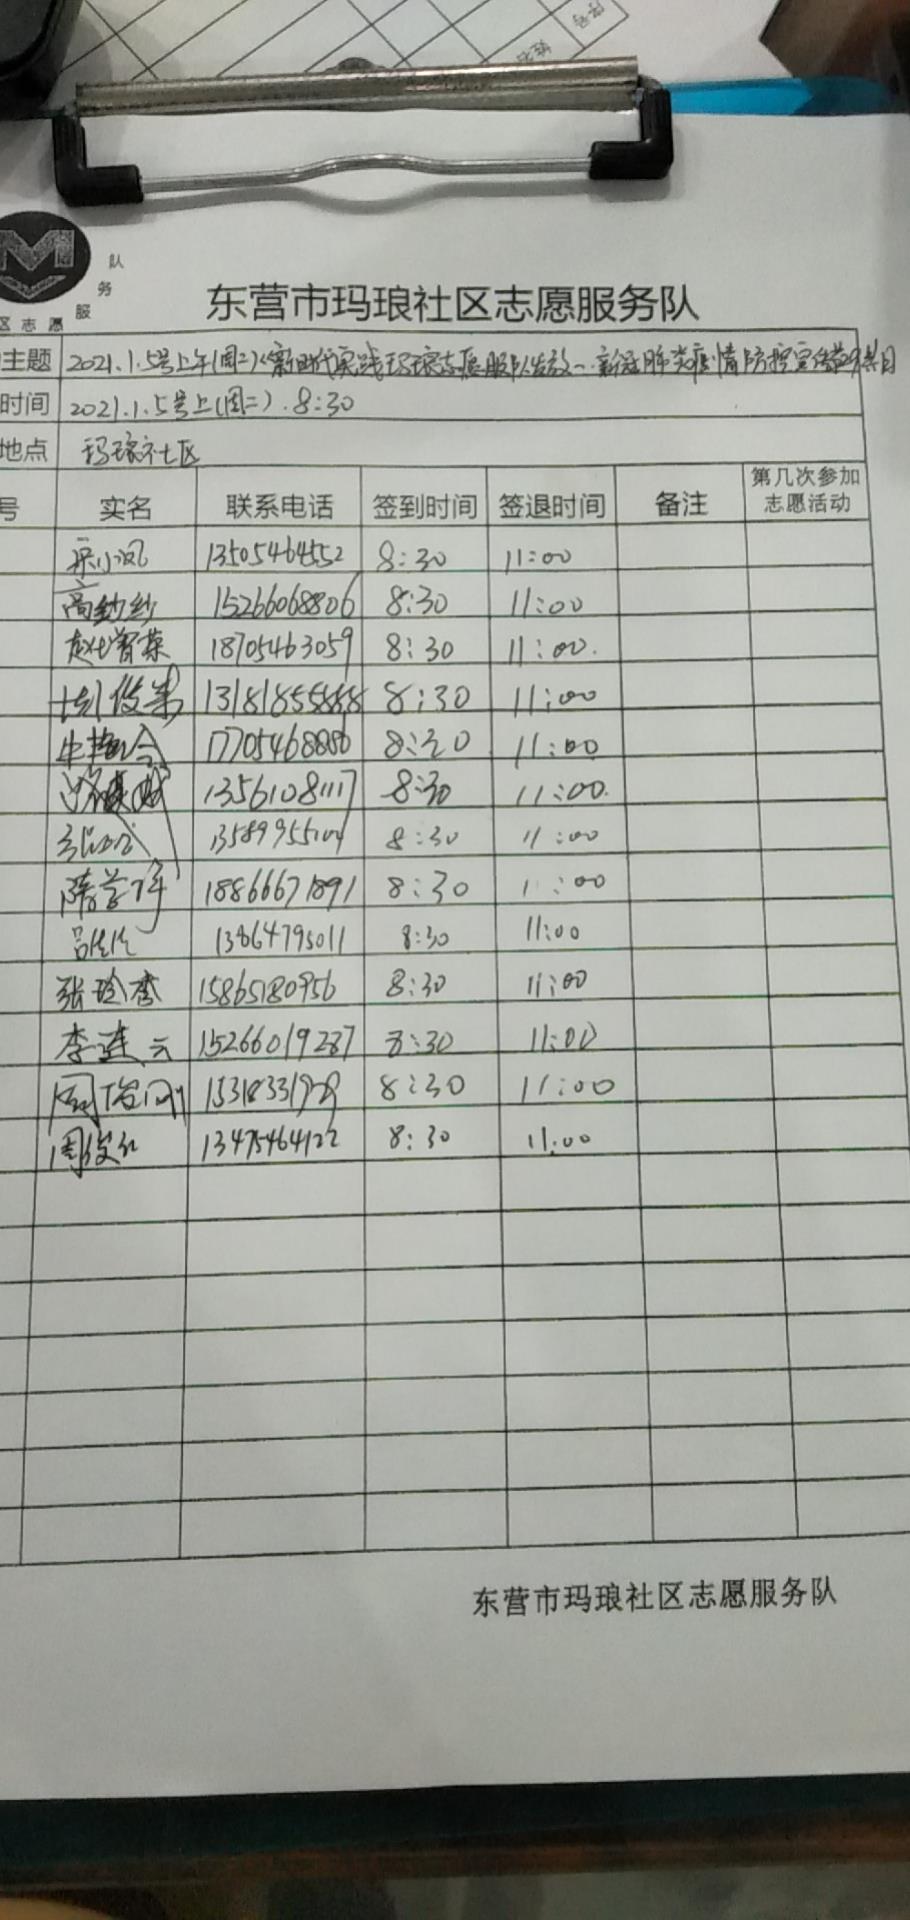 序号
队
务
服
区志愿
东营市玛琅社区志愿服务队
主题 2021.1.5号上午(周二)新时代实践玛琅志愿服队发放 新冠肺炎疫情防控宣传
时间 2021.1.5号上(周二).8:30
地点 玛琅社区
号 实名 联系电话 签到时间 签退时间 备注 第几次参加志愿活动
13505464552 8:30 11:00
高纱纱 15266068806 8:30 11:00
赵智荣 18705463059 8:30 11:00.
8:30 11:00
17705468886 8:30 11:00
13561081117 8:30 11:00.
8:30 11:00
隋学 18866671891 8:30 11:00
吕佳佳 13864795011 8:30 11:00
张玲香 15865180956 8:30 11:00
李莲云 15266019287 8:30 11:00
8:30 11:00
周俊红 13475464122 8:30 11:00
东营市玛琅社区志愿服务队